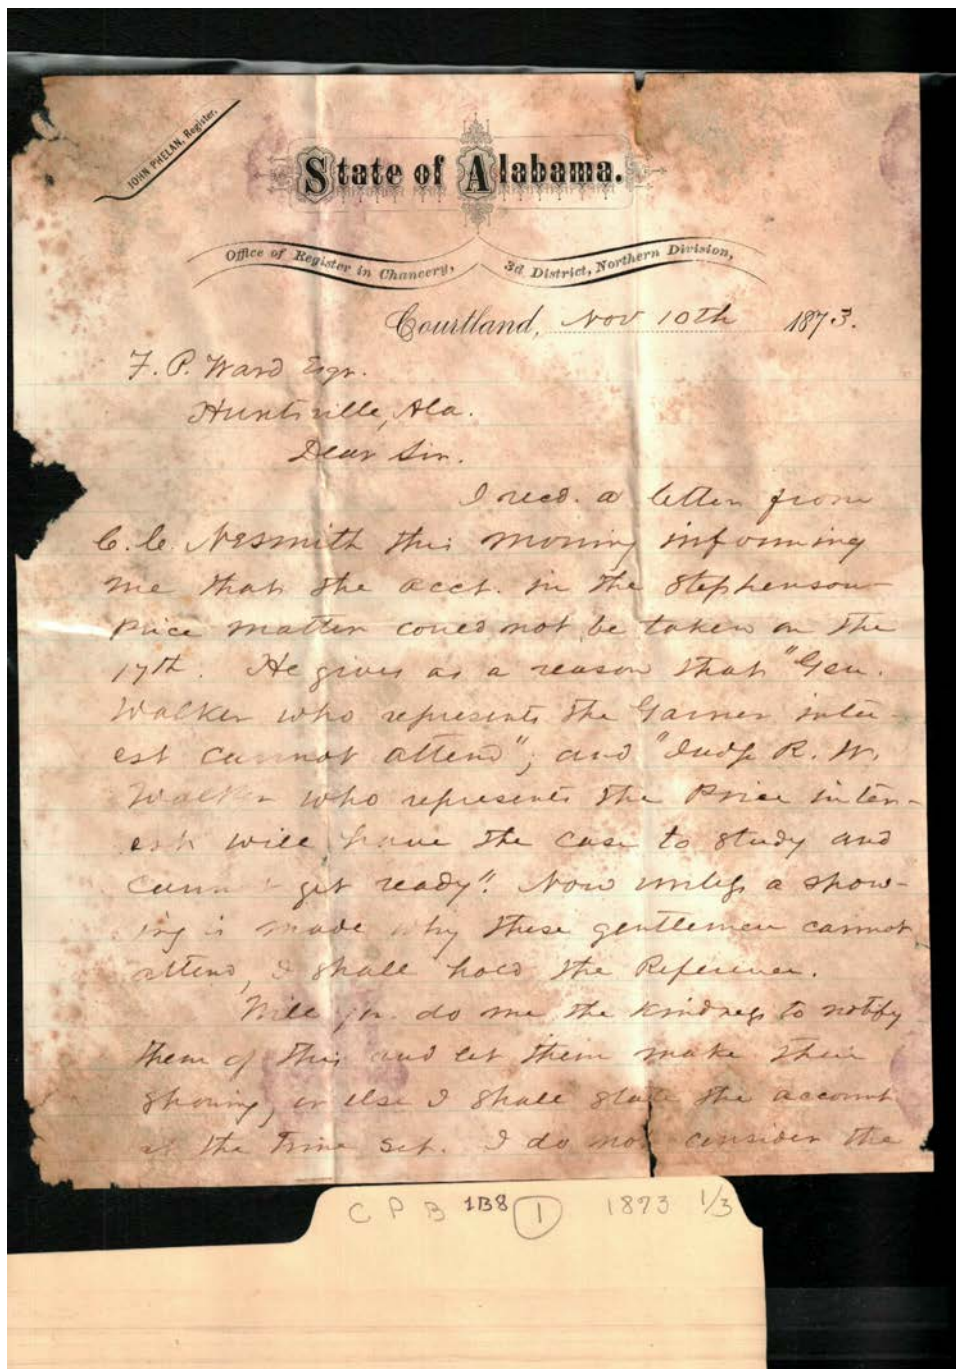 JOHN PHELAN, Register.
State of Alabama.
Office of Register in Chancery, 3d District, Northern Division,
Courtland, Nov 10th 1873.
F. P. Ward Esqr.
Huntsville, Ala.
Dear Sir.
I recd. a letter from
C. C. Nesmith this morning informing
me that the acct. in the Stephenson
Price matter could not be taken on the
17th. He gives as a reason that "Gen.
Walker who represents the Garner inter-
est cannot attend"; and "Judge R. W.
Walker who represents the Price inter-
est will have the case to study and
cannot get ready". Now unless a show-
ing is made why these gentlemen cannot
attend, I shall hold the Reference.
Will you do me the kindness to notify
them of this and let them make their
showing, or else I shall state the account
at the time set. I do not consider the
C P B 1B8 1 1873 1/3